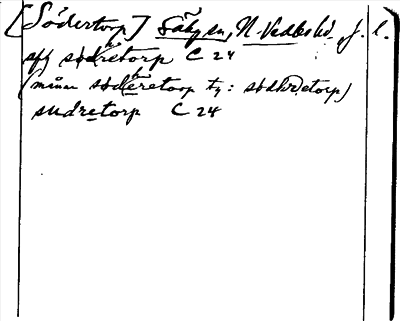 [Södertorp] Säby sn, N. Vedbo hd, J. l.
aff sødretorp C 24
(minus søderetorp ty: sødhretorp)
sudretorp C 24